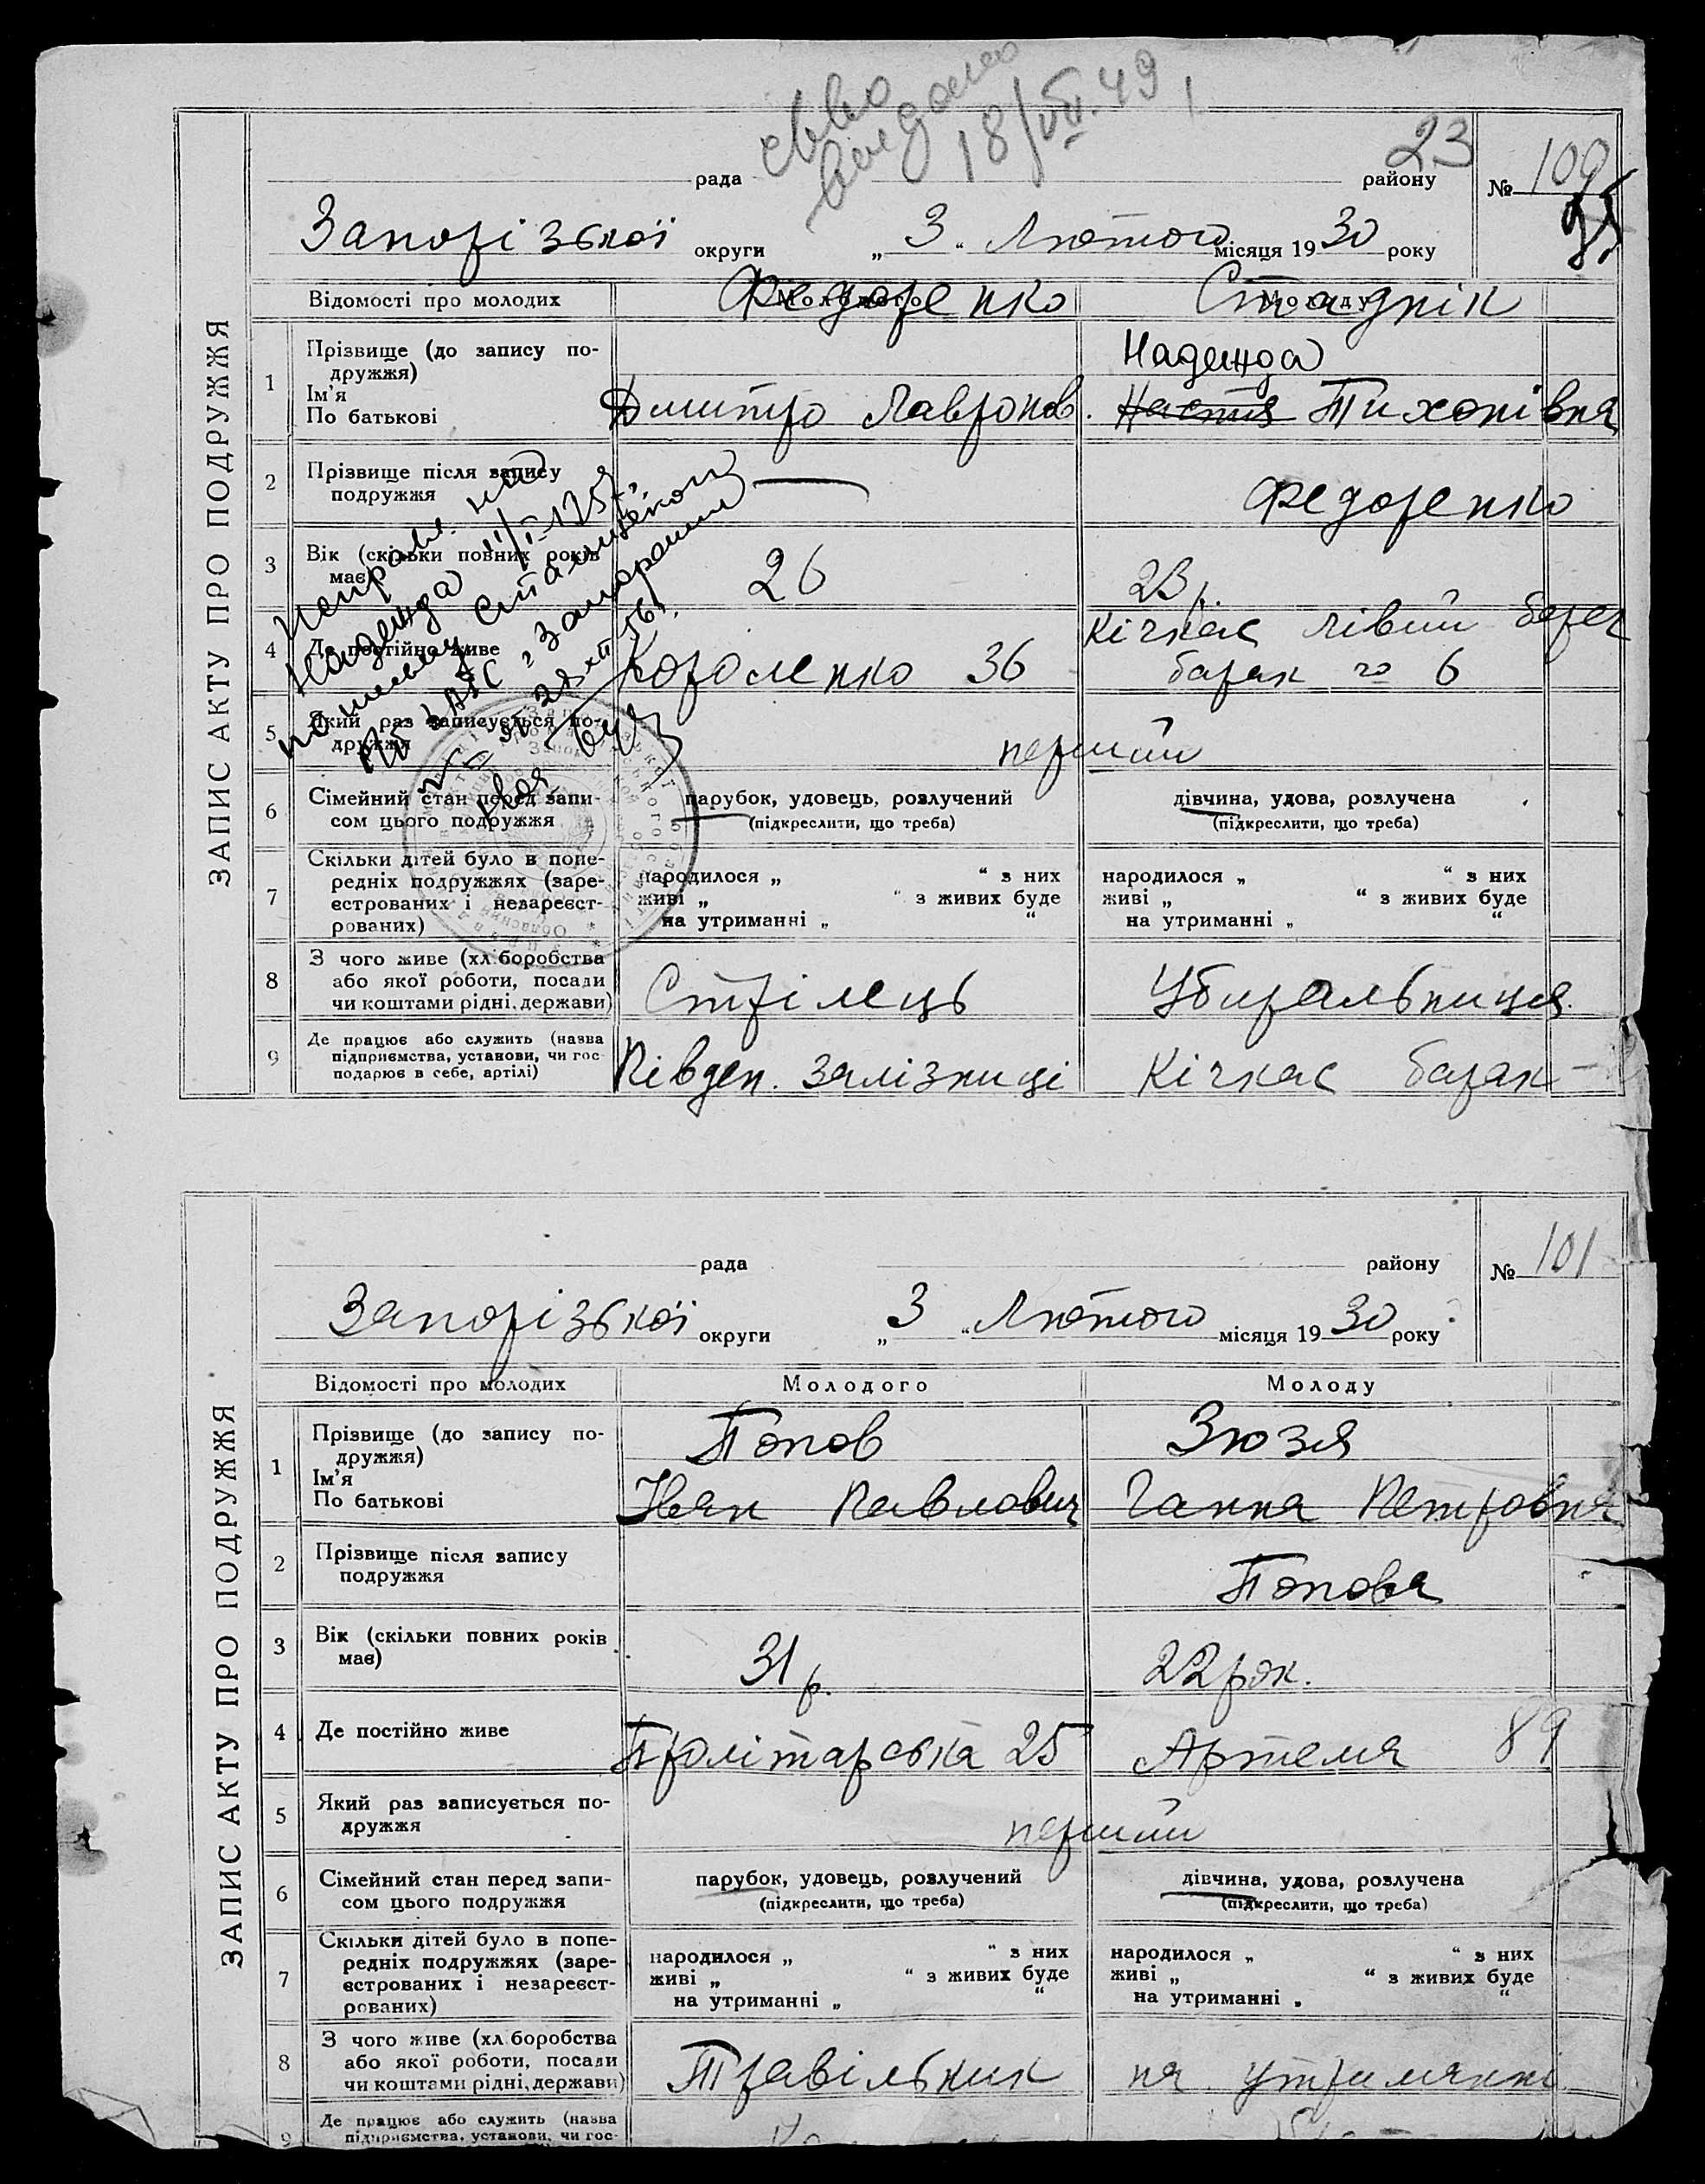 св-во
выдано
18/VII.49
23
рада району № 100
95
Запорізької округи „ 3 “ Лютого місяця 19 30 року
ЗАПИС АКТУ ПРО ПОДРУЖЖЯ
Відомості про молодих Молодого Молоду
Федоренко Стаднік
1 Прізвище (до запису по-
дружжя)
Ім’я
По батькові
Надежда
Дмитро Лавронов. Настя Тихонівна
2 Прізвище після запису
подружжя
— Федоренко
3 Вік (скільки повних років
має)
26 23 р.
4 Де постійно живе
Кічкас лівий берег
Короленко 36 барак № 6
5 Який раз записується по-
дружжя
перший
6 Сімейний стан перед запи-
сом цього подружжя
парубок, удовець, розлучений дівчина, удова, розлучена
(підкреслити, що треба) (підкреслити, що треба)
7 Скільки дітей було в попе-
редніх подружжях (заре-
єстрованих і незареєст-
рованих)
народилося „ “ з них народилося „ “ з них
живі „ “ з живих буде живі „ “ з живих буде
на утриманні „ “ на утриманні „ “
8 З чого живе (хліборобства
або якої роботи, посади
чи коштами рідні, держави)
Стрілець Убиральниця
9 Де працює або служить (назва
підприємства, установи, чи гос-
подарює в себе, артілі)
Півден. залізниці Кічкас барак
Исправл. на
Надежда
Сталинского
ЗАГС г. Запорожья
рада району № 101
Запорізької округи „ 3 “ Лютого місяця 19 30 року
ЗАПИС АКТУ ПРО ПОДРУЖЖЯ
Відомості про молодих Молодого Молоду
1 Прізвище (до запису по-
дружжя)
Ім’я
По батькові
Попов Зюзя
Іван Павлович Ганна Петровна
2 Прізвище після запису
подружжя
Попова
3 Вік (скільки повних років
має)
31 р. 22 рок.
4 Де постійно живе
Пролітарська 25 Артема 89
5 Який раз записується по-
дружжя
перший
6 Сімейний стан перед запи-
сом цього подружжя
парубок, удовець, розлучений дівчина, удова, розлучена
(підкреслити, що треба) (підкреслити, що треба)
7 Скільки дітей було в попе-
редніх подружжях (заре-
єстрованих і незареєст-
рованих)
народилося „ “ з них народилося „ “ з них
живі „ “ з живих буде живі „ “ з живих буде
на утриманні „ “ на утриманні „ “
8 З чого живе (хліборобства
або якої роботи, посади
чи коштами рідні, держави)
Правільник на утриманні
9 Де працює або служить (назва
підприємства, установи, чи гос-